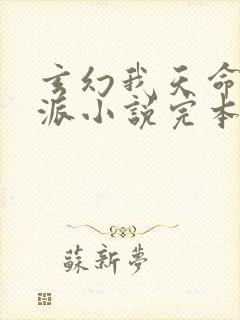 玄幻我天命
派小說完本
蘇新夢